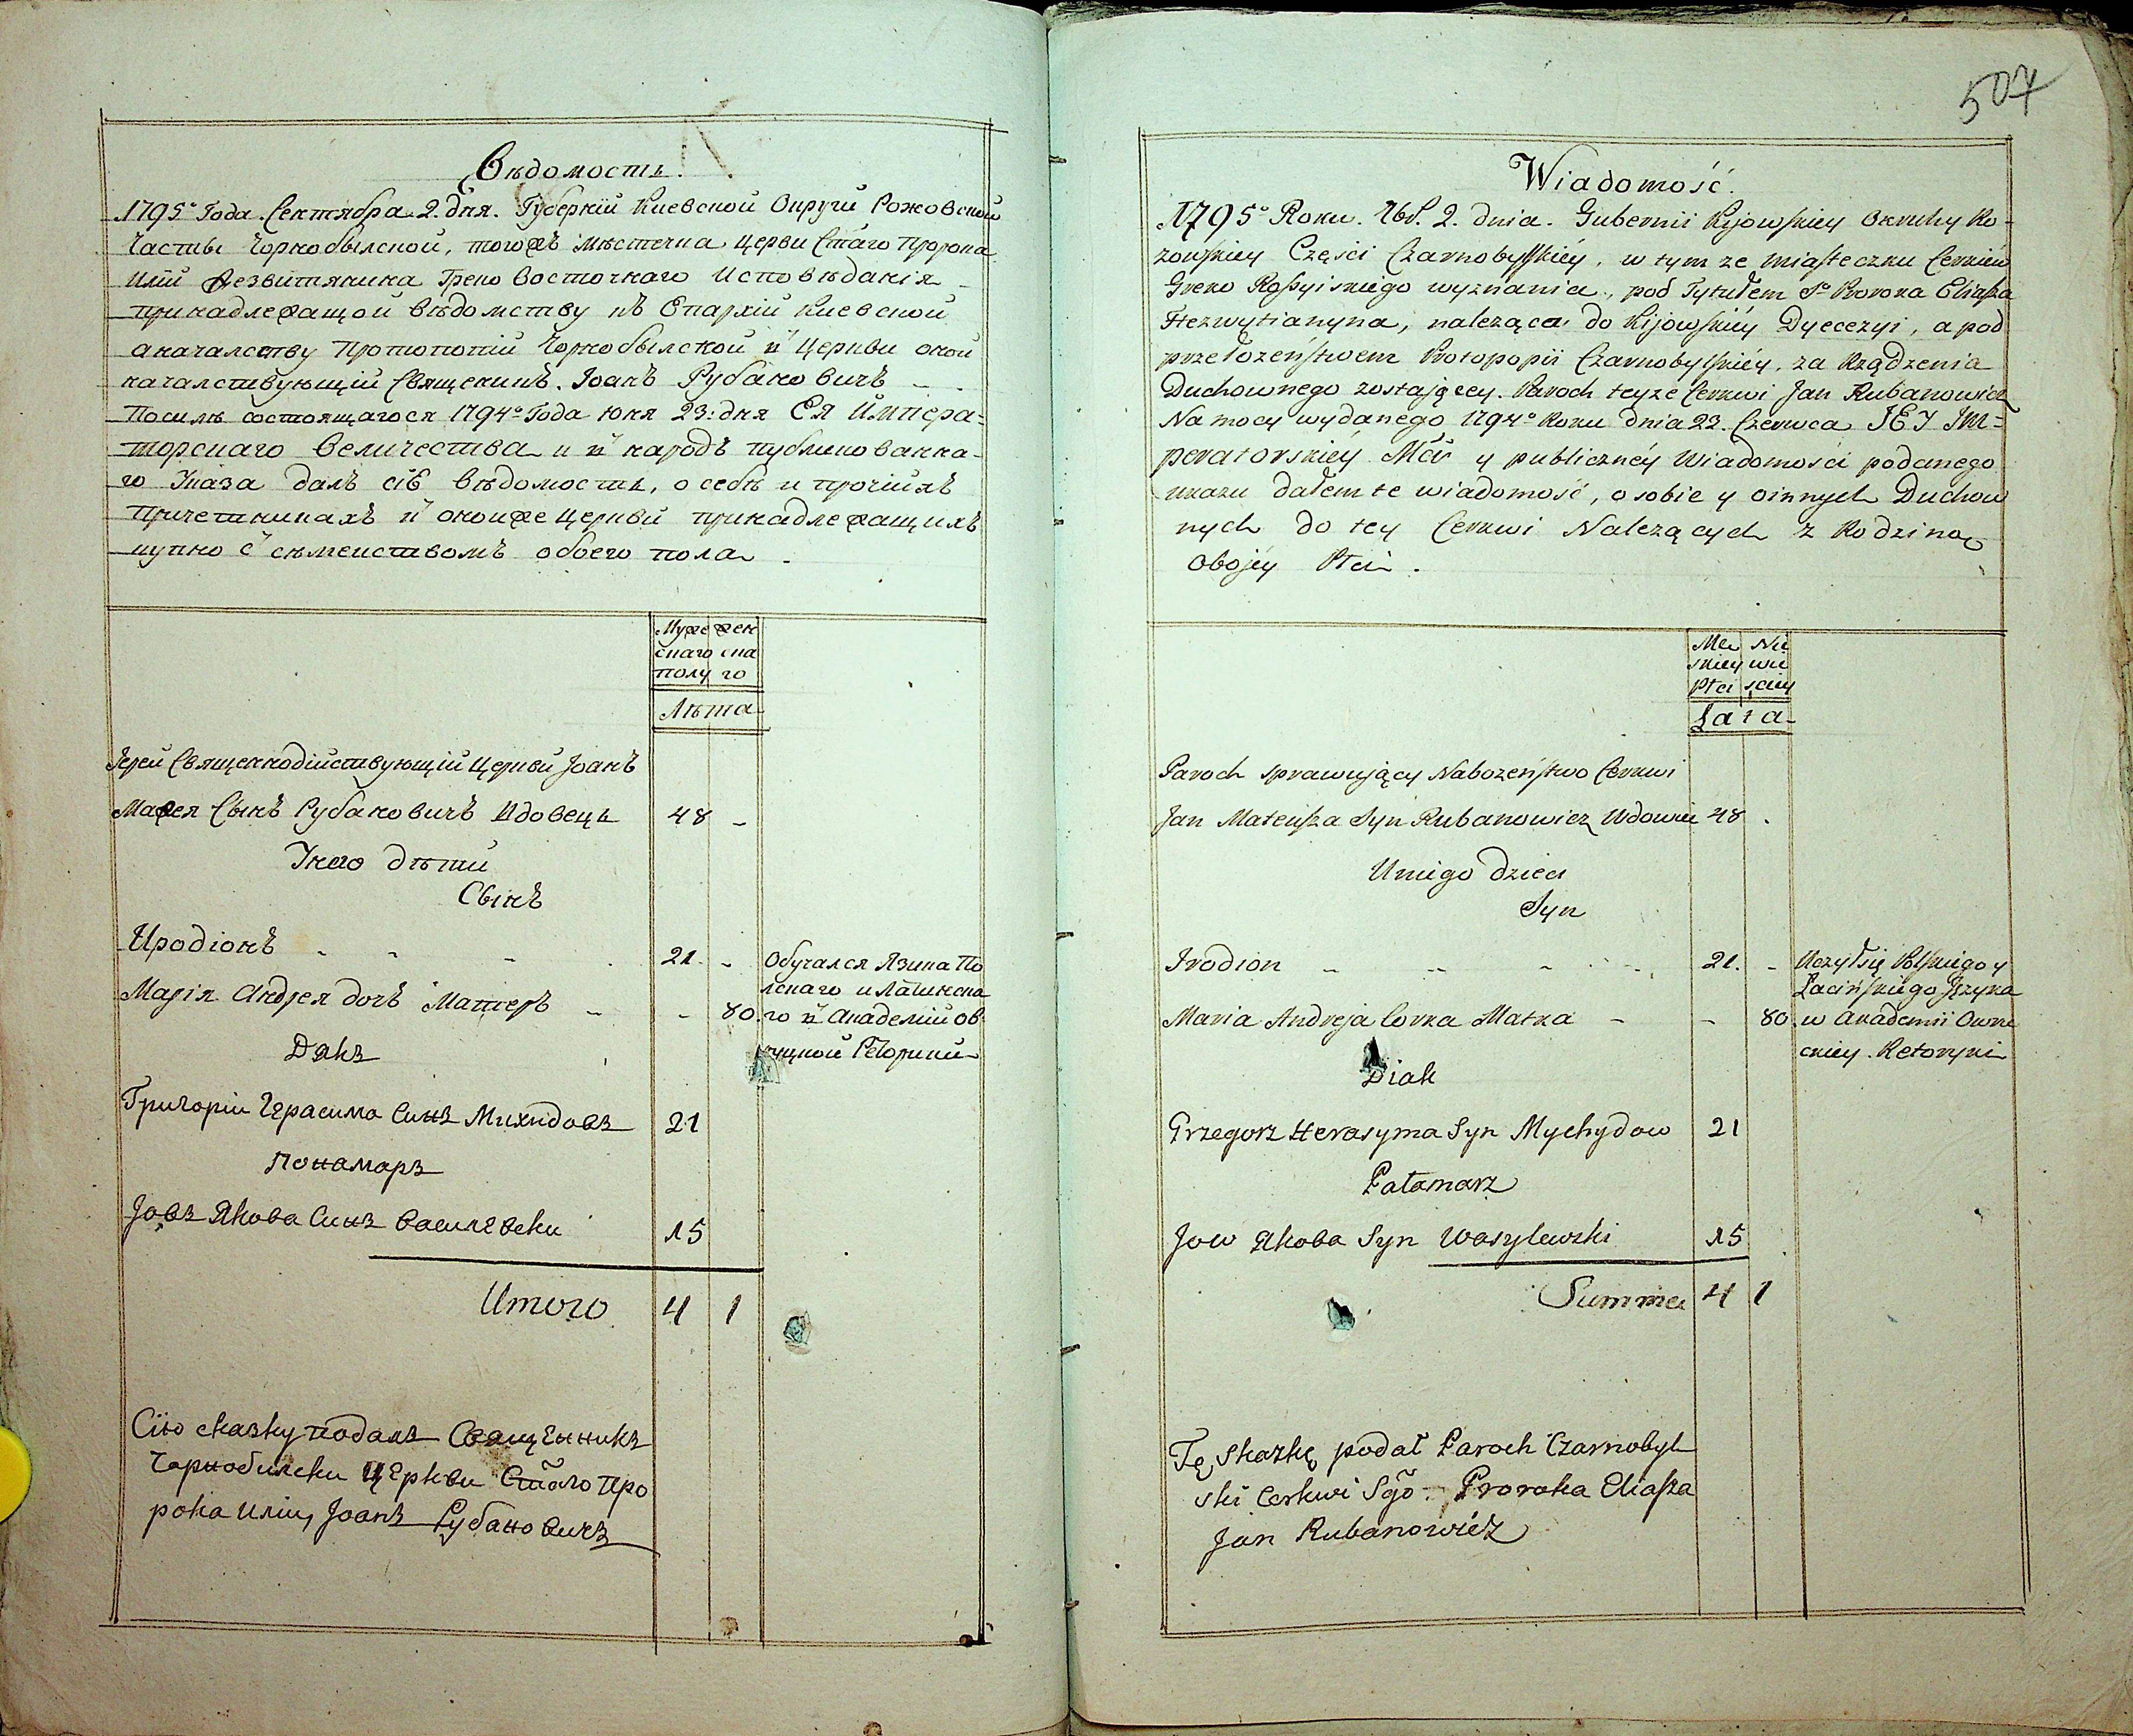 Вѣдомость.
1795º Года. Сентября 2. дня. Губернїи Киевской Округи Рожовской
Части Чорнобылской, тогожъ мѣстечка Церви Стаго Пророка
Илїи Фезвитянина Греко Восточнаго Исповѣданїя
принадлежащой вѣдомству къ Епархїи Киевской
аначалству Протопопїи Чорнобылской й Церкви оной
началствующїй Священникъ. Іоанъ Рубановичъ
Посилѣ состоящагося 1794º Года Юня 23: дня Ея Импера=
торскаго Величества и й народъ публикованна-
го Указа далъ сїѣ вѣдомость, о себѣ и прочїихъ
причетникахъ й оноиже Церкви принадлежащихъ
купно с сѣмеиствомъ обоего пола.
Муже жен
скаго ска
полу го
Лѣта
Іерей Священнодїйствующїй Церкви Іоанъ
Мафея Сынъ Рубановичъ Вдовецъ 48 -
Унего дѣти
Сынъ
Иродїонъ - - - . 21. - Обучался Язика По
лскаго и Латинска
Марїя Андрея дочъ Матеръ - - 80. го й Академїи Ов
ручкой Реторики
Дякъ
Григорїи Герасима Синъ Михидовъ 21
Пономаръ
Іовъ Якова Синъ Василевски 15
Итого 4 1
Сїю сказку подалъ Священникъ
Чорнобилски Церкви Стаго Про
рока Илїи, Іоанъ Рубановичъ
507
Wiadomość.
1795º Roku. 7br. 2. dnia. Gubernii Kijowskiey Okruhy Ro-
zowskiey Części Czarnobylskiéy, w tym ze Miasteczku Cerkiew
Greko Rossyiskiego wyznania, pod Tytułem Sº Proroka Eliasza
Hezwytianyna, naleząca do Kijowskiéy Dyecezyi, a pod
przełozeństwem Protopopii Czarnobylskiéy, za Rządzenia
Duchownego zostającey. Paroch teyze Cerkwi Jan Rubanowicz
Na mocy wydanego 1794º Roku dnia 23. Czerwca JEJ IM=
peratorskiéy Mci y publicznéy Wiadomosci podanego
ukazu dałem te wiadomość, o sobie y oinnych Duchow
nych do tey Cerkwi Nalezących z Rodziną
Obojéy Płci.
Me Nie
skiey wie
Płci sciey
Lata
Paroch sprawujący Nabozeństwo Cerkwi
Jan Mateusza Syn Rubanowicz Wdowiec 48 .
Uniego dzieci
Syn
Irodion - - - - 21. - Uczył się Polskiego y
Łacińskiego Języka
Maria Andreja Corka Matka - - 80. w Akademii Owru
ckiey. Retoryki
Diak
Grzegorz Herasyma Syn Mychydow 21
Pałamarz
Jow Якова Syn Wasylewski 15
Summa 4 1
Tę skazkę podał Paroch Czarnobyl
ski Cerkwi Sgo Proroka Eliasza
Jan Rubanowicz